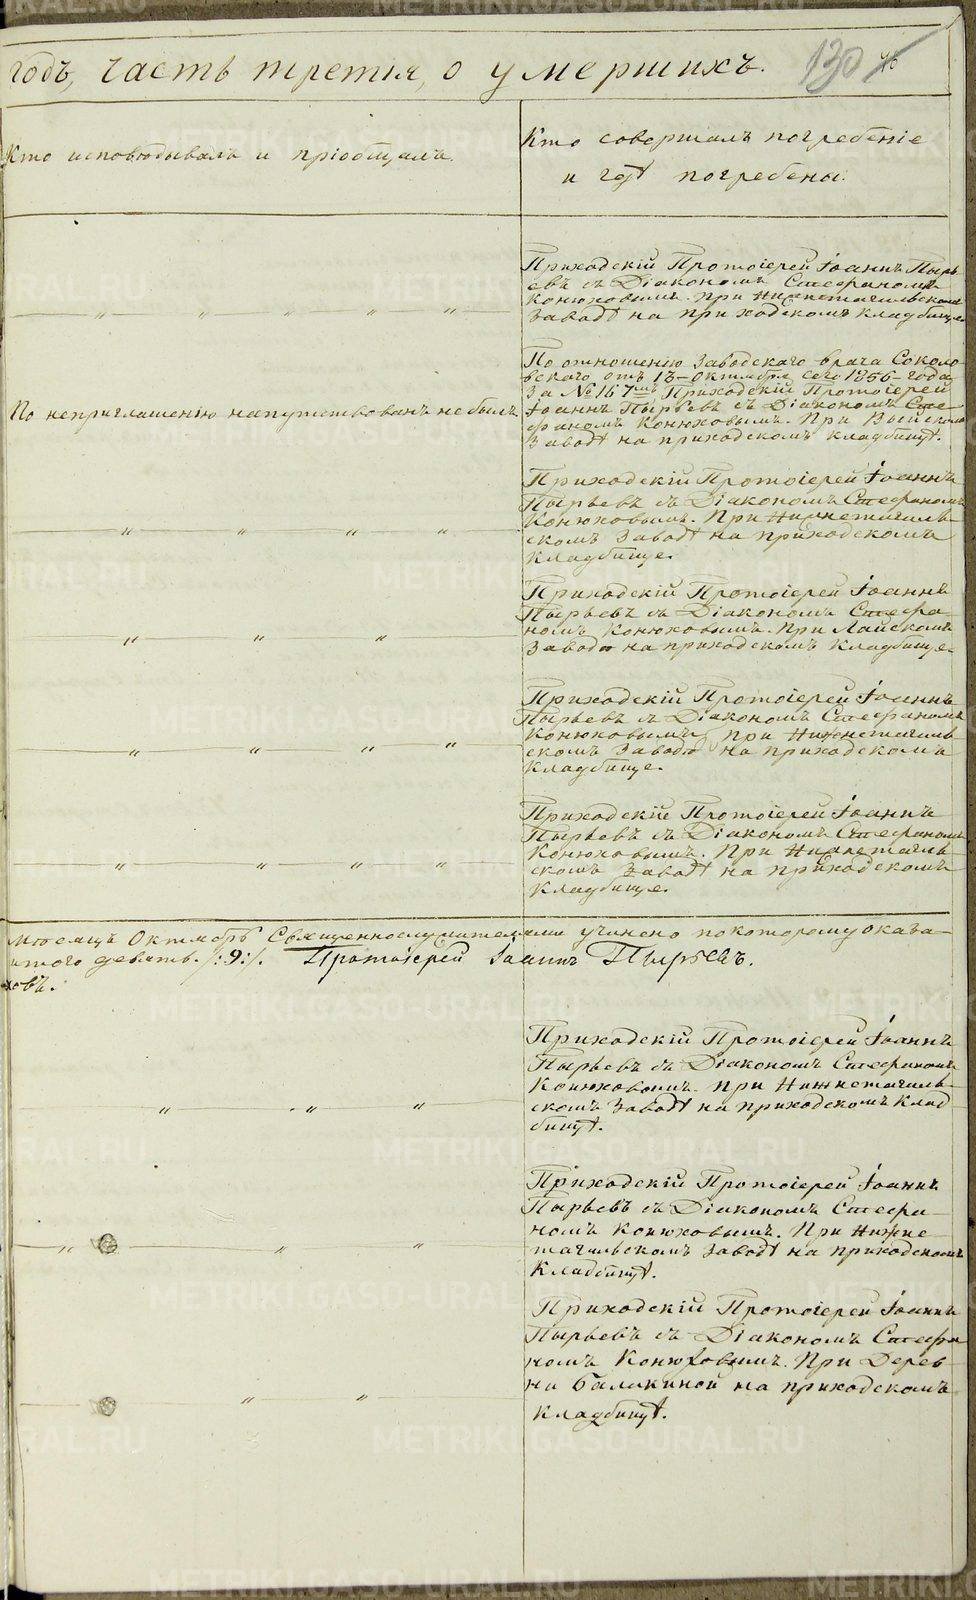 годъ, часть третія, о умершихъ.
130
Кто исповѣдывалъ и пріобщалъ.
Кто совершалъ погребеніе
и гдѣ погребены.
Приходскій Протоіерей Іоаннъ Пырь-
евъ съ Діакономъ Стефаномъ
Конюховымъ. При Нижнетагильскомъ
Заводѣ на приходскомъ кладбище.
По неприглашенію напутствованъ не былъ
По отношенію Заводскаго врача Соколо-
вскаго отъ 13 Октября сего 1856 года
За № 167мъ Приходскій Протоіерей
Іоаннъ Пырьевъ съ Діакономъ Сте-
фаномъ Конюховымъ. При Выйскомъ
Заводѣ на приходскомъ кладбищѣ.
Приходскій Протоіерей Іоаннъ
Пырьевъ съ Діакономъ Стефаномъ
Конюховымъ. При Нижнетагиль-
скомъ Заводѣ на приходскомъ
кладбище.
Приходскій Протоіерей Іоаннъ
Пырьевъ съ Діакономъ Стефа-
номъ Конюховымъ. При Лайскомъ
Заводѣ на приходскомъ кладбище.
Приходскій Протоіерей Іоаннъ
Пырьевъ съ Діакономъ Стефаномъ
Конюховымъ, при Нижнетагиль-
скомъ Заводѣ на приходскомъ
кладбище.
Приходскій Протоіерей Іоаннъ
Пырьевъ съ Діакономъ Стефаномъ
Конюховымъ. При Нижнетагиль-
скомъ Заводѣ на приходскомъ
кладбище.
мѣсяцъ Октябрь Священнослужителями учинено по которому оказа-
итого девять. /:9:/. Протоіерей Іоаннъ Пырьевъ.
ховъ.
Приходскій Протоіерей Іоаннъ
Пырьевъ съ Діакономъ Стефаномъ
Конюховымъ. при Нижнетагиль-
скомъ Заводѣ на приходскомъ клад-
бищѣ.
Приходскій Протоіерей Іоаннъ
Пырьевъ съ Діакономъ Стефа-
номъ Конюховымъ. При Нижне-
тагильскомъ Заводѣ на приходскомъ
Кладбищѣ.
Приходскій Протоіерей Іоаннъ
Пырьевъ съ Діакономъ Стефа-
номъ Конюховымъ. При Дерев-
ни Балакиной на приходскомъ
кладбищѣ.
METRIKI.GASO-URAL.RU